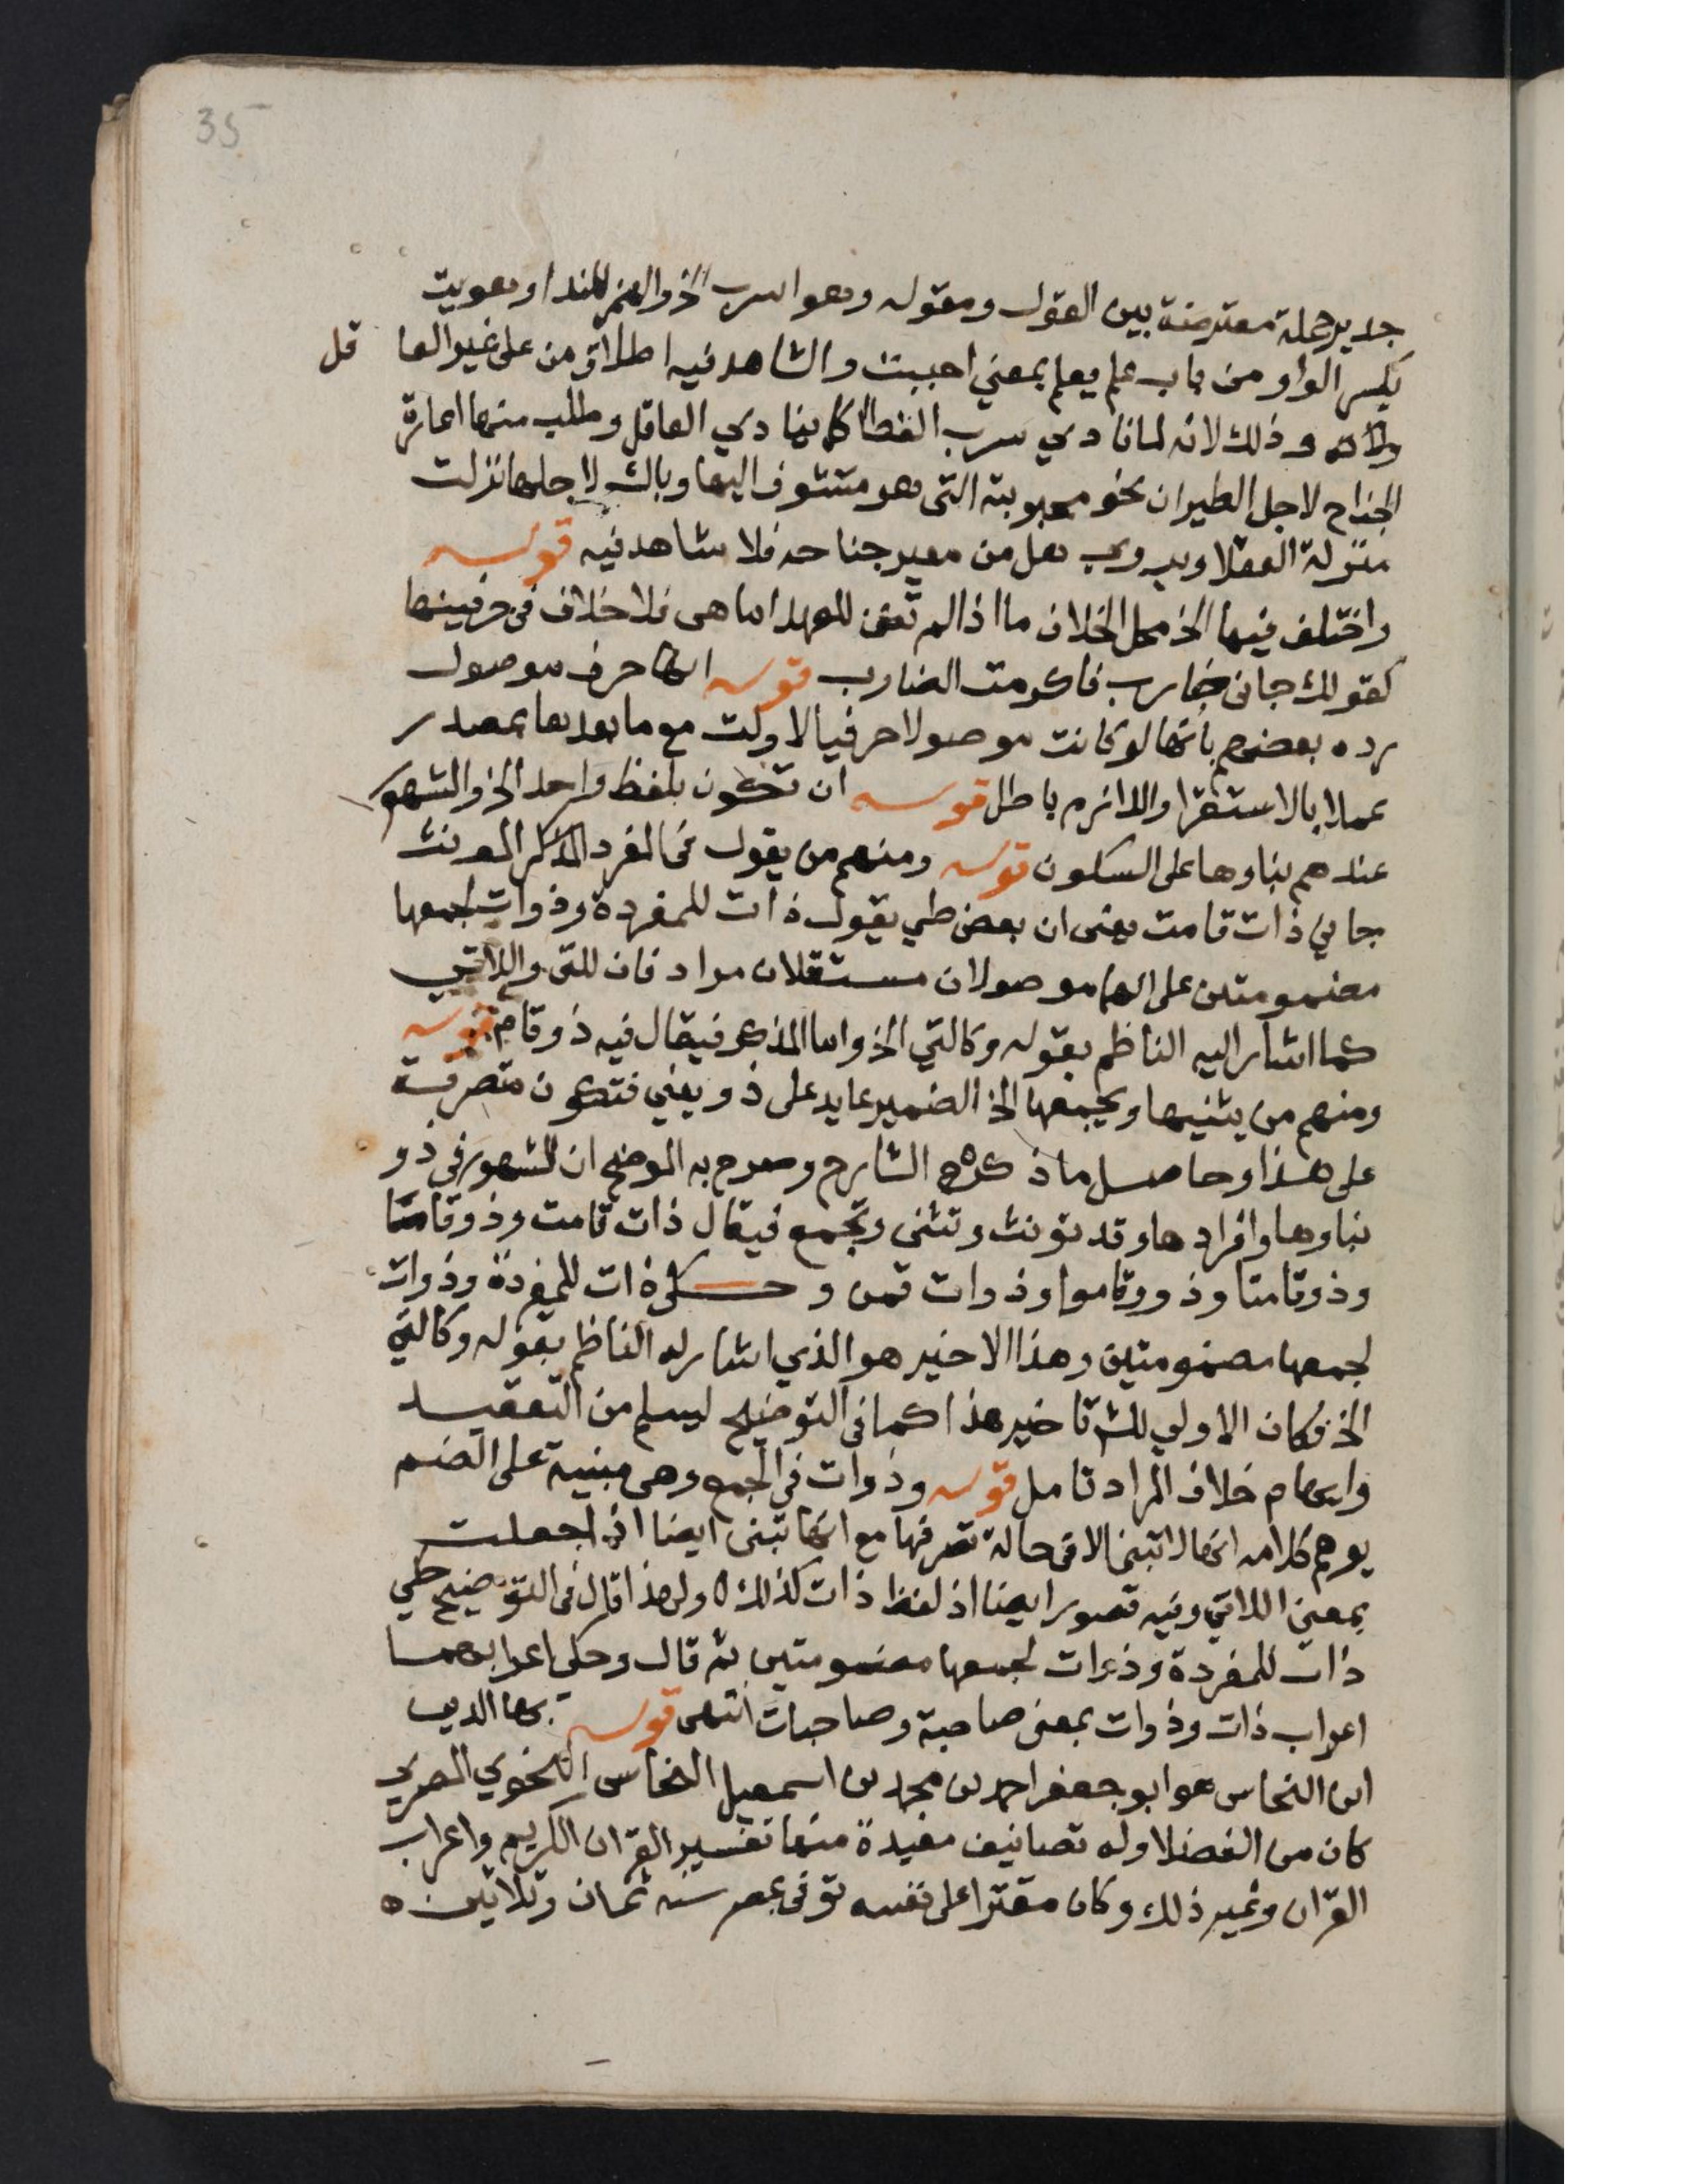 35
جدير جملة معترضة بين القول ومقوله وهو اسرب الخ والهمز للندا وهويت
بكسر الواو من باب علم يعلم بمعني احببت والشاهد فيه اطلاق من علي غير العا قل
وذلك لانه لما نادي سرب القطا كما ينادي العاقل وطلب منها اعارة
الجناح لاجل الطيران نحو محبوبته التي هو متشوف اليها وباك لاجلها نزلت
منزلة العقلا ويروي هل من معير جناحه فلا شاهد فيه قوله
واختلف فيها الخ محل الخلاف ما اذا لم تكن للعهد اما هي فلا خلاف في حرفيتها
كقولك جاني ضارب فاكرمت الضارب قوله انها حرف موصول
رده بعضهم بانها لو كانت موصولا حرفيا لاولت مع ما بعدها بمصدر
عملا بالاستقرا واللازم باطل قوله ان تكون بلفظ واحد الخ والشهور
عندهم بناوها على السكون قوله ومنهم من يقول في المفرد المذكر المونث
جاني ذات قامت يعني ان بعض طي يقول ذات للمفردة وذوات لجمعها
مضمومتين على انهما موصولان مستقلان مراد فان للتي واللاتي
كما اشار اليه الناظم بقوله وكالتي الخ واما المذكر فيقال فيه ذو قام قوله
ومنهم من يثنيها ويجمعها الخ الضمير عايد على ذو يعني فتكون متصرفة
على هذا وحاصل ما ذكره الشارح وصرح به الموضح ان المشهور في ذو
بناوها وافرادها وقد تونث وتثنى وتجمع فيقال ذات قامت وذو قاما
وذوتا قامتا وذوو قاموا وذوات قمن وحكي ذات للمفردة وذوات
لجمعها مضمومتين وهذا الاخير هو الذي اشار له الناظم بقوله وكالتي
الخ فكان الاولي للش تاخير هذا كما في التوضيح ليسلم من التعقيد
وايهام خلاف المراد تامل قوله وذوات في الجمع وهى مبنية على الضم
يوهم كلامه انها لا تبنى الا في حالة تصرفها مع انها تبنى ايضا اذا جعلت
بمعنى اللاتي وفيه قصور ايضا اذ لفظ ذات كذلك ولهذا قال في التوضيح حكي
ذات للمفردة وذوات لجمعها مضمومتين ثم قال وحكي اعرابهما
اعراب ذات وذوات بمعنى صاحبة وصاحبات انتهى قوله بها الدين
ابن النحاس هو ابو جعفر احمد بن محمد بن اسمعيل النحاس النحوي المصري
كان من الفضلا وله تصانيف مفيدة منها تفسير القران الكريم واعراب
القران وغير ذلك وكان مقترا على نفسه توفي بمصر سنه ثمان وثلاثين